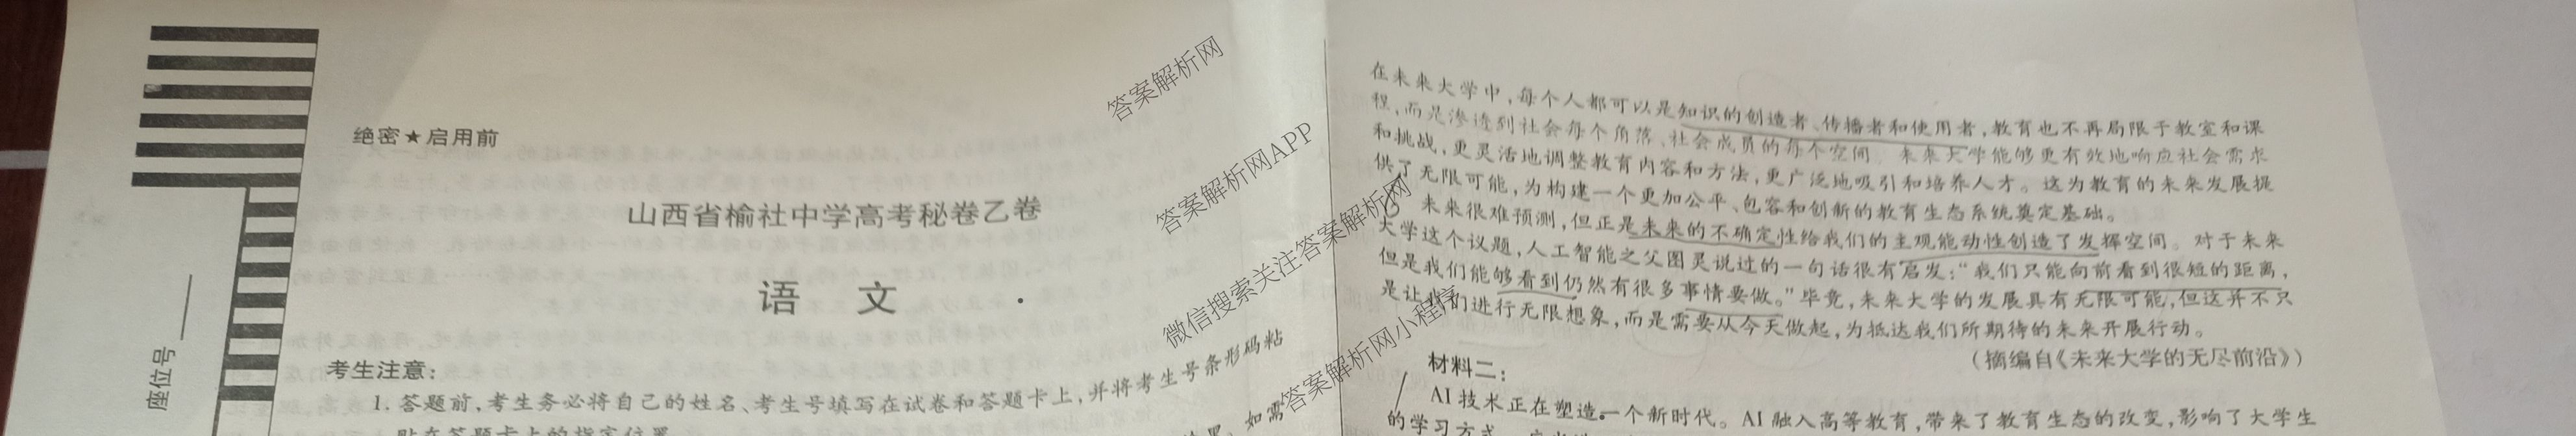 绝密★启用前
山西省榆社中学高考秘卷乙卷
语 文
座位号
考生注意：
1. 答题前,考生务必将自己的姓名、考生号填写在试卷和答题卡上,并将考生号条形码粘
贴在答题卡上的指定位置
如需
在未来大学中,每个人都可以是知识的创造者、传播者和使用者,教育也不再局限于教室和课
程,而是渗透到社会每个角落、社会成员的每个空间。未来大学能够更有效地响应社会需求
和挑战,更灵活地调整教育内容和方法,更广泛地吸引和培养人才。这为教育的未来发展提
供了无限可能,为构建一个更加公平、包容和创新的教育生态系统奠定基础。
未来很难预测,但正是未来的不确定性给我们的主观能动性创造了发挥空间。对于未来
大学这个议题,人工智能之父图灵说过的一句话很有启发:“我们只能向前看到很短的距离,
但是我们能够看到仍然有很多事情要做。”毕竟,未来大学的发展具有无限可能,但这并不只
是让我们进行无限想象,而是需要从今天做起,为抵达我们所期待的未来开展行动。
(摘编自《未来大学的无尽前沿》)
材料二:
AI技术正在塑造一个新时代。AI融入高等教育,带来了教育生态的改变,影响了大学生
的学习方式
答案解析网
答案解析网APP
微信搜索关注答案解析网
答案解析网小程序